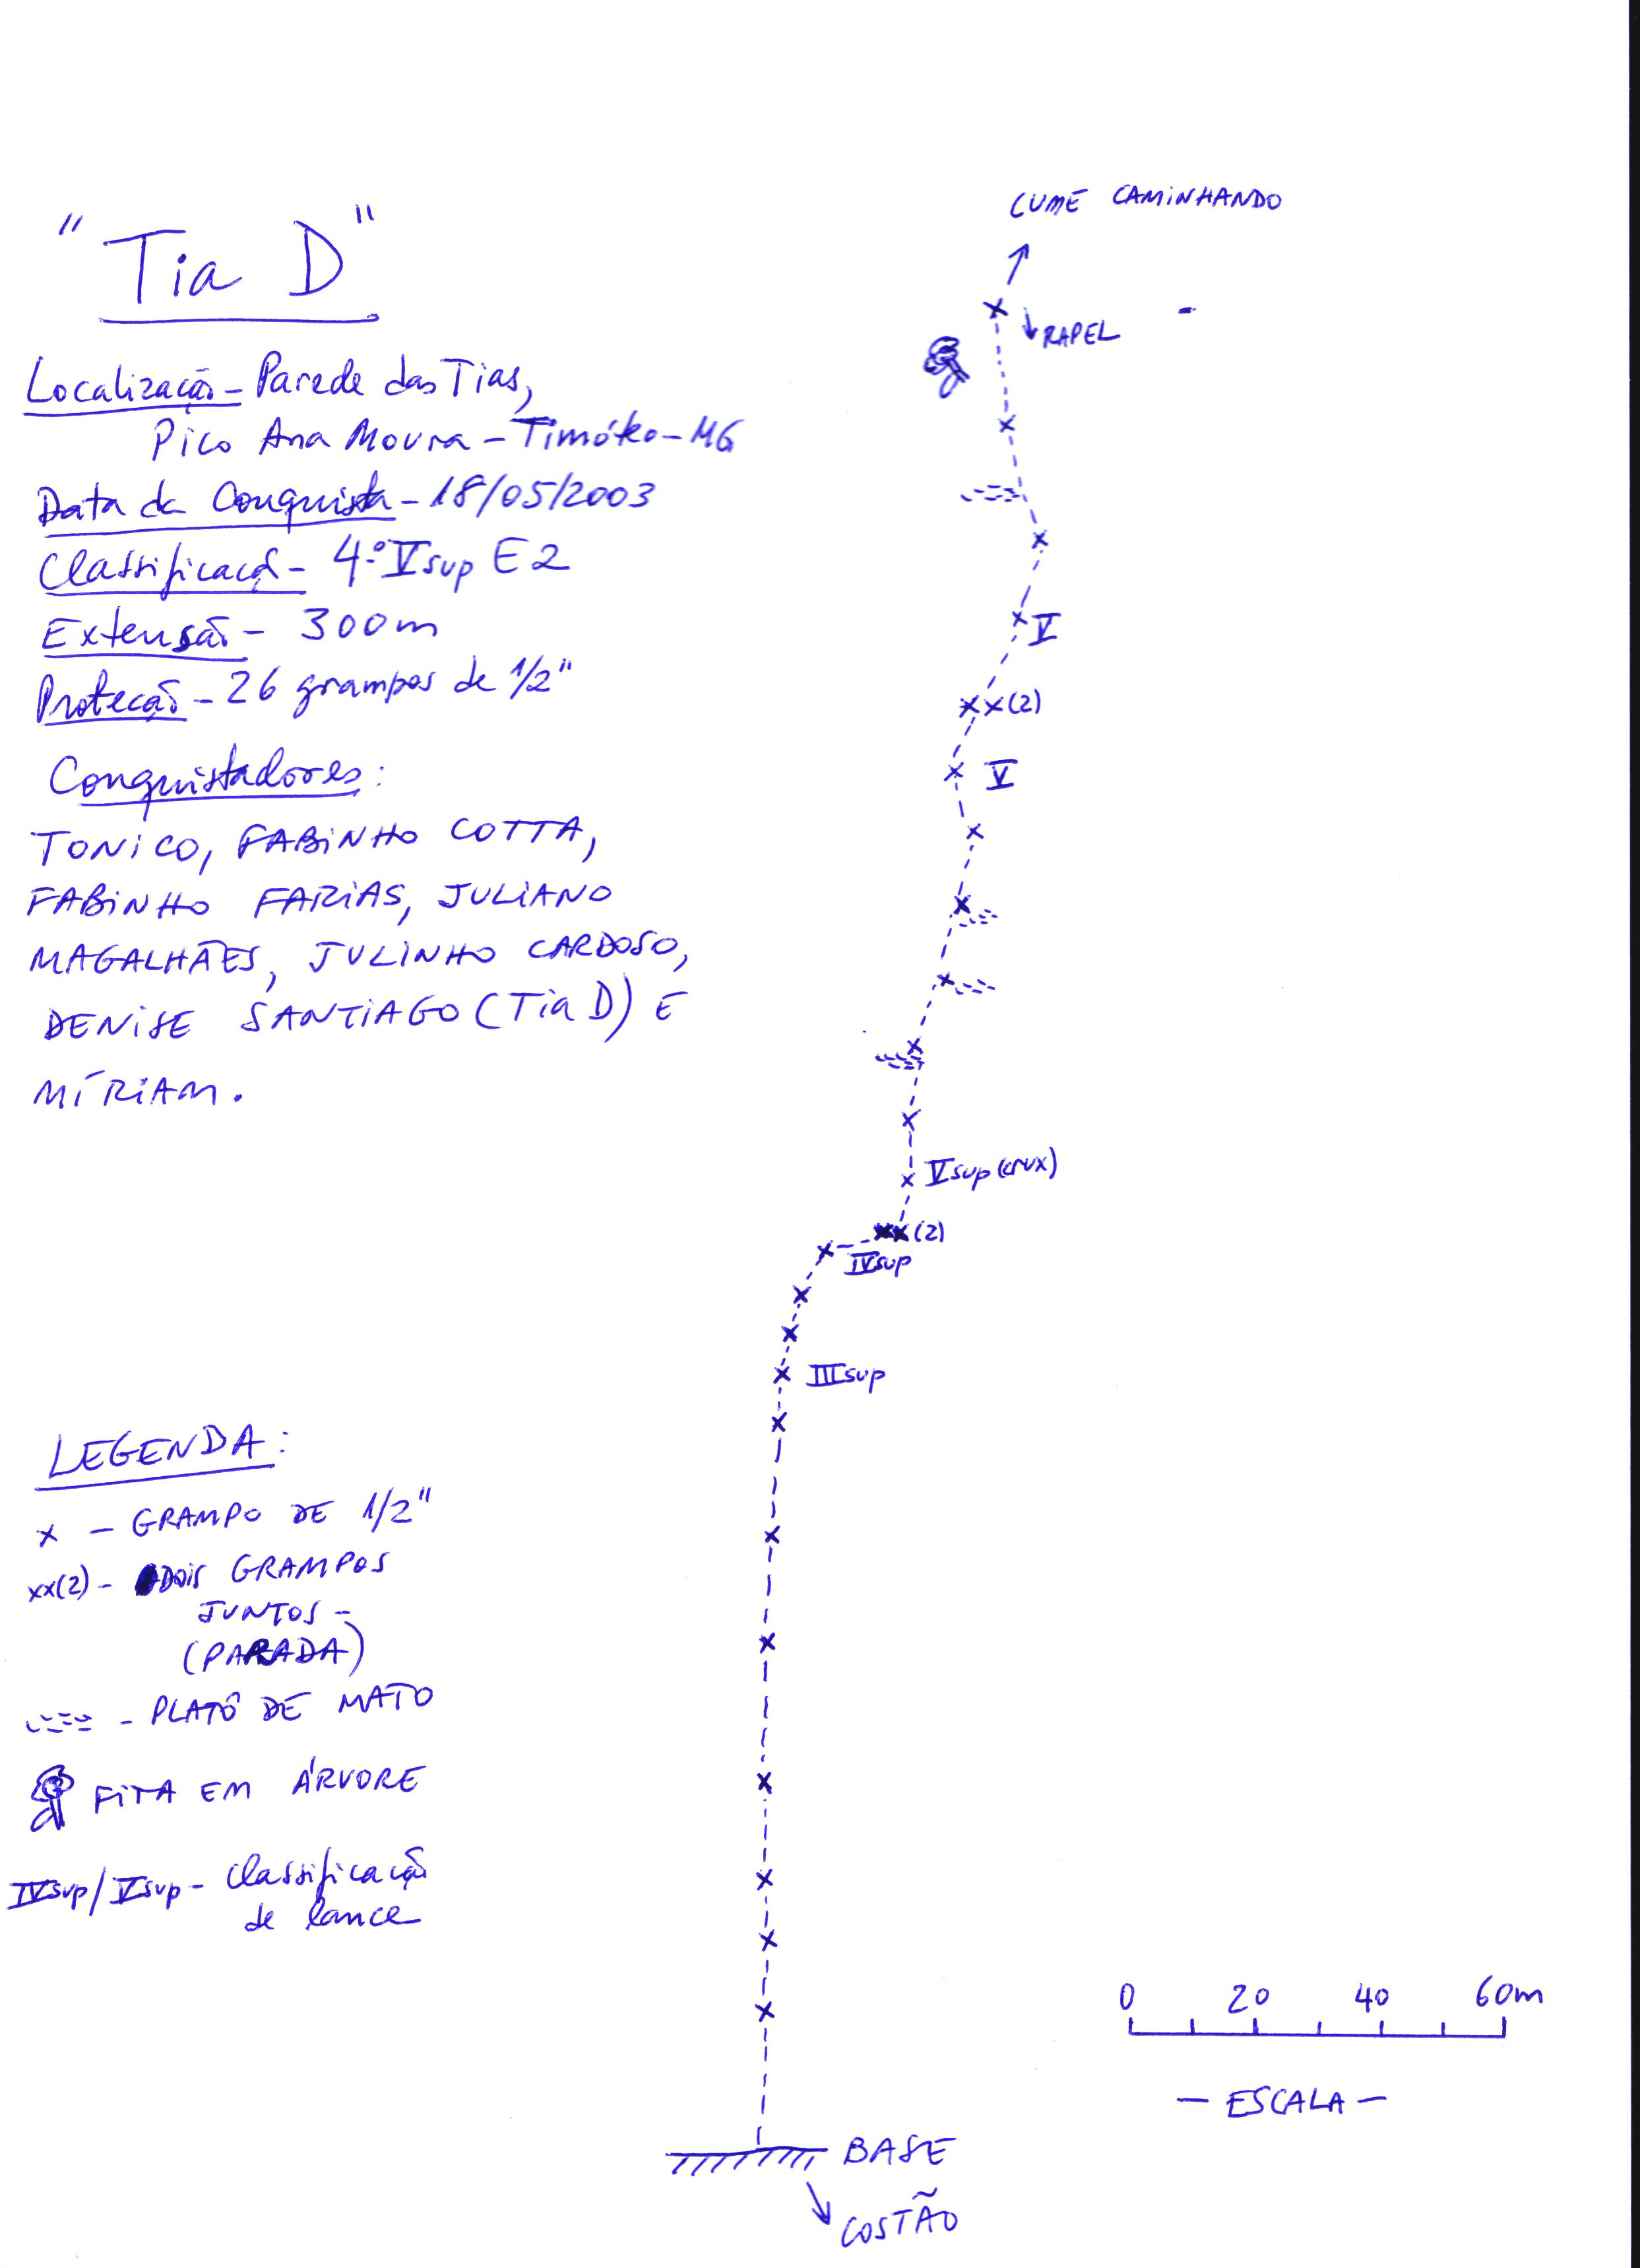 "Tia D"
Localização - Parede das Tias,
Pico Ana Moura - Timóteo - MG
Data da Conquista - 18/05/2003
Classificação - 4º Vsup E2
Extensão - 300m
Proteção - 26 grampos de 1/2"
Conquistadores:
TONICO, FABINHO COTTA,
FABINHO FARIAS, JULIANO
MAGALHÃES, JULINHO CARDOSO,
DENISE SANTIAGO (Tia D) E
MÍRIAM.
LEGENDA:
x - GRAMPO DE 1/2"
xx(2) - DOIS GRAMPOS
JUNTOS -
(PARADA)
- PLATÔ DE MATO
FITA EM ÁRVORE
IVsup/Vsup - Classificação
de lance
CUME CAMINHANDO
RAPEL
V
(2)
V
Vsup (crux)
(2)
IVsup
IIIsup
BASE
COSTÃO
0 20 40 60m
- ESCALA -